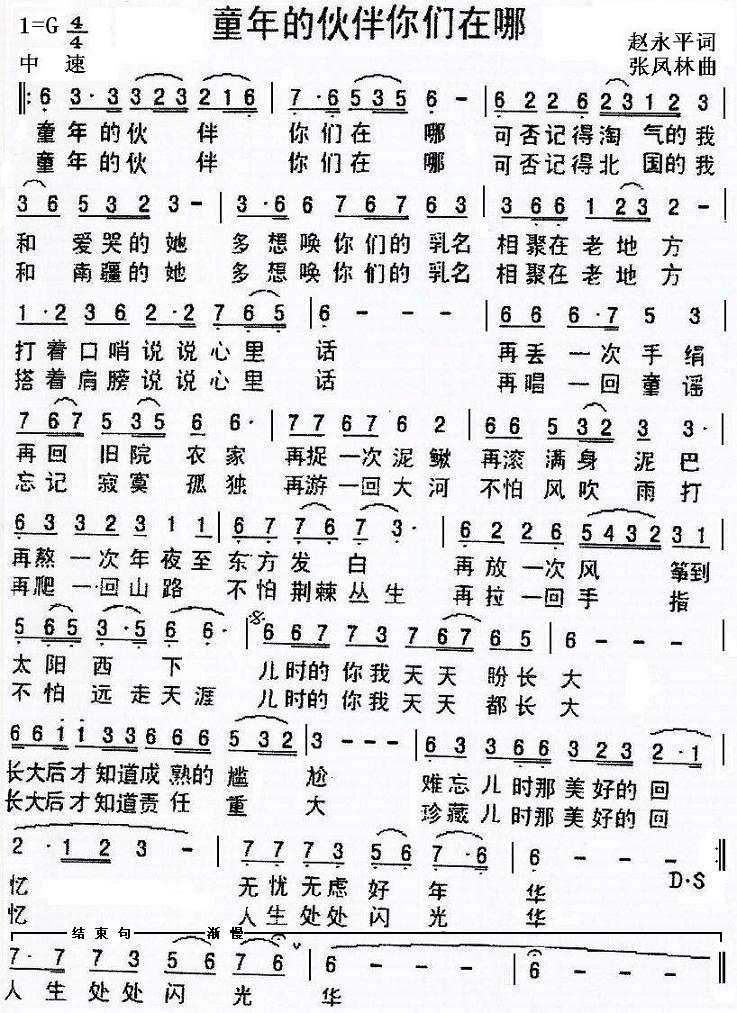 童年的伙伴你们在哪
1=G 4/4
中 速
赵永平词
张凤林曲
6 3·3 3 2 3 2 1 6 | 7·6 5 3 5 6 - | 6 2 2 6 2 3 1 2 3
童年的伙 伴 你们在 哪 可否记得淘 气的我
童年的伙 伴 你们在 哪 可否记得北 国的我
3 6 5 3 2 3 - | 3·6 6 7 6 7 6 3 | 3 6 6 1 2 3 2 -
和 爱哭的她 多想唤你们的乳名 相聚在老地方
和 南疆的她 多想唤你们的乳名 相聚在老地方
1·2 3 6 2·2 7 6 5 | 6 - - | 6 6 6·7 5 3
打着口哨说说心里 话 再丢 一次手绢
搭着肩膀说说心里 话 再唱 一回童谣
7 6 7 5 3 5 6 6· | 7 7 6 7 6 2 | 6 6 5 3 2 3 3·
再回 旧院 农家 再捉一次泥鳅 再滚满身 泥巴
忘记 寂寞 孤独 再游一回大河 不怕风吹 雨打
6 3 3 2 3 1 1 | 6 7 7 6 7 3· | 6 2 2 6 5 4 3 2 3 1
再熬一次年夜至 东方发 白 再放一次风 筝到
再爬一回山路 不怕荆棘丛生 再拉一回手 指
5 6 5 3·5 6 6· | 6 6 7 7 3 7 6 7 6 5 | 6 - - -
太阳 西 下 儿时的你我天天 盼长 大
不怕 远走天涯 儿时的你我天天 都长 大
6 6 1 1 3 3 6 6 6 5 3 2 | 3 - - - | 6 3 3 6 6 3 2 3 2·1
长大后才知道成熟的 尴 尬 难忘儿时那美好的回
长大后才知道责任 重 大 珍藏儿时那美好的回
2·1 2 3 - | 7 7 7 3 5 6 7·6 | 6 - -
忆 无忧无虑好 年 华
忆 人生处处闪 光 华
D·S
结束句 渐慢
7·7 7 3 5 6 7 6 | 6 - - - | 6 - - -
人生处处闪 光 华